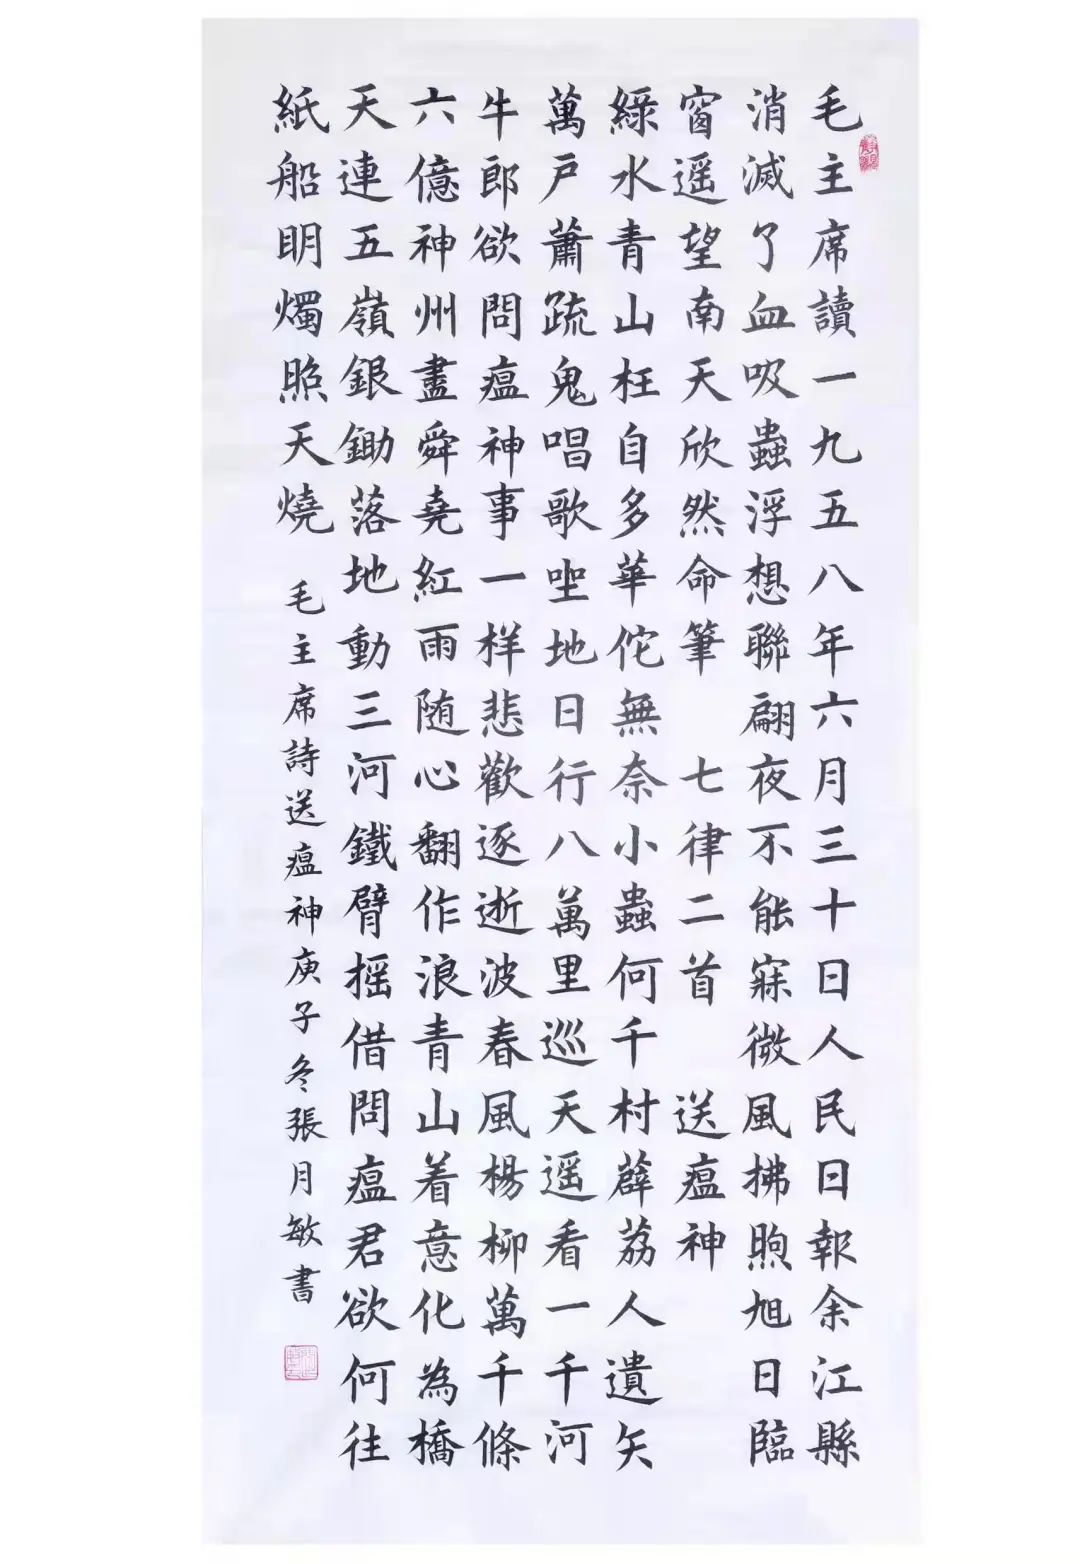 毛主席讀一九五八年六月三十日人民日報余江縣
消滅了血吸蟲浮想聯翩夜不能寐微風拂煦旭日臨
窗遥望南天欣然命筆 七律二首 送瘟神
綠水青山枉自多華佗無奈小蟲何千村薜荔人遺矢
萬戶蕭疏鬼唱歌坐地日行八萬里巡天遥看一千河
牛郎欲問瘟神事一样悲歡逐逝波春風楊柳萬千條
六億神州盡舜堯紅雨随心翻作浪青山着意化為橋
天連五嶺銀鋤落地動三河鐵臂摇借問瘟君欲何往
紙船明燭照天燒 毛主席詩送瘟神庚子冬張月敏書